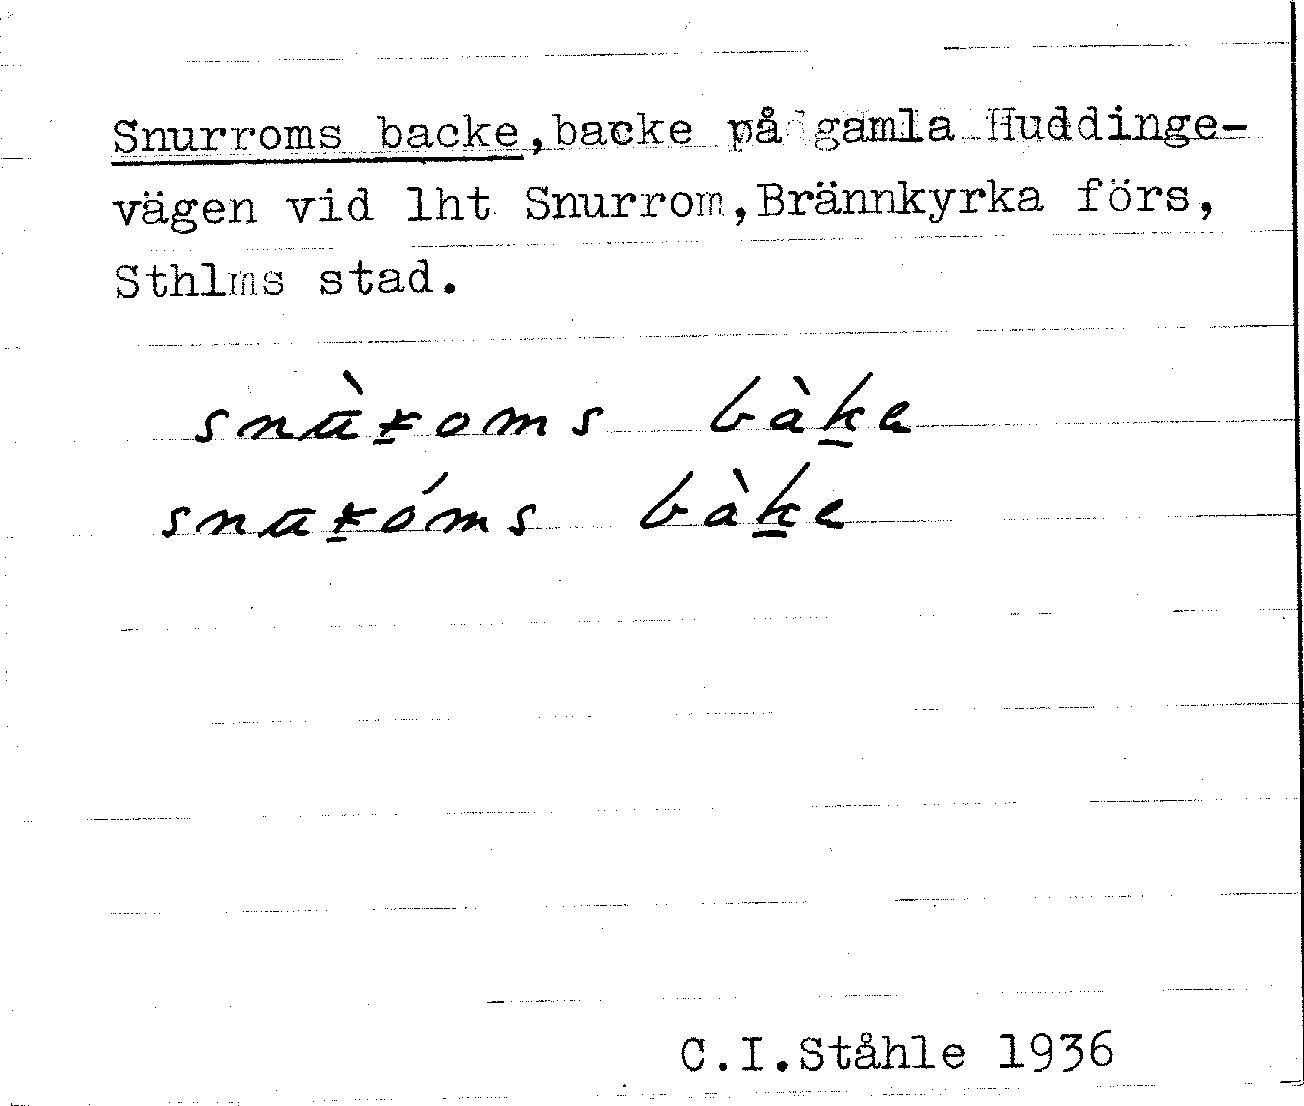 Snurroms backe,backe på gamla Huddinge-
vägen vid lht Snurrom,Brännkyrka förs,
Sthlms stad.
bàke
bàke
C.I.Ståhle 1936